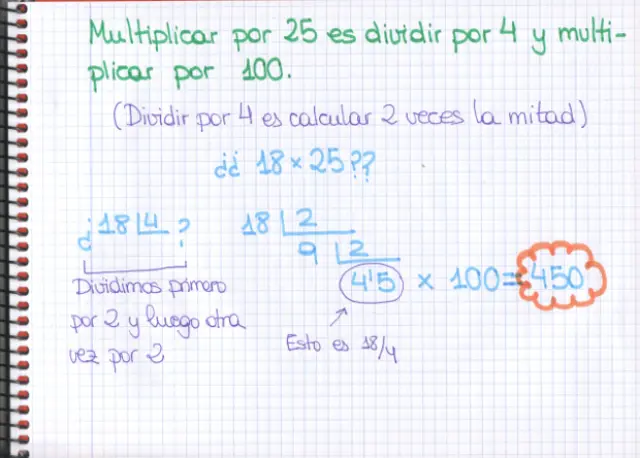 Multiplicar por 25 es dividir por 4 y multi-
plicar por 100.
(Dividir por 4 es calcular 2 veces la mitad)
¿¿ 18 × 25??
¿ 18 4 ?
18 2
9 2
4'5 × 100 = 450
Dividimos primero
por 2 y luego otra
vez por 2
Esto es 18/4